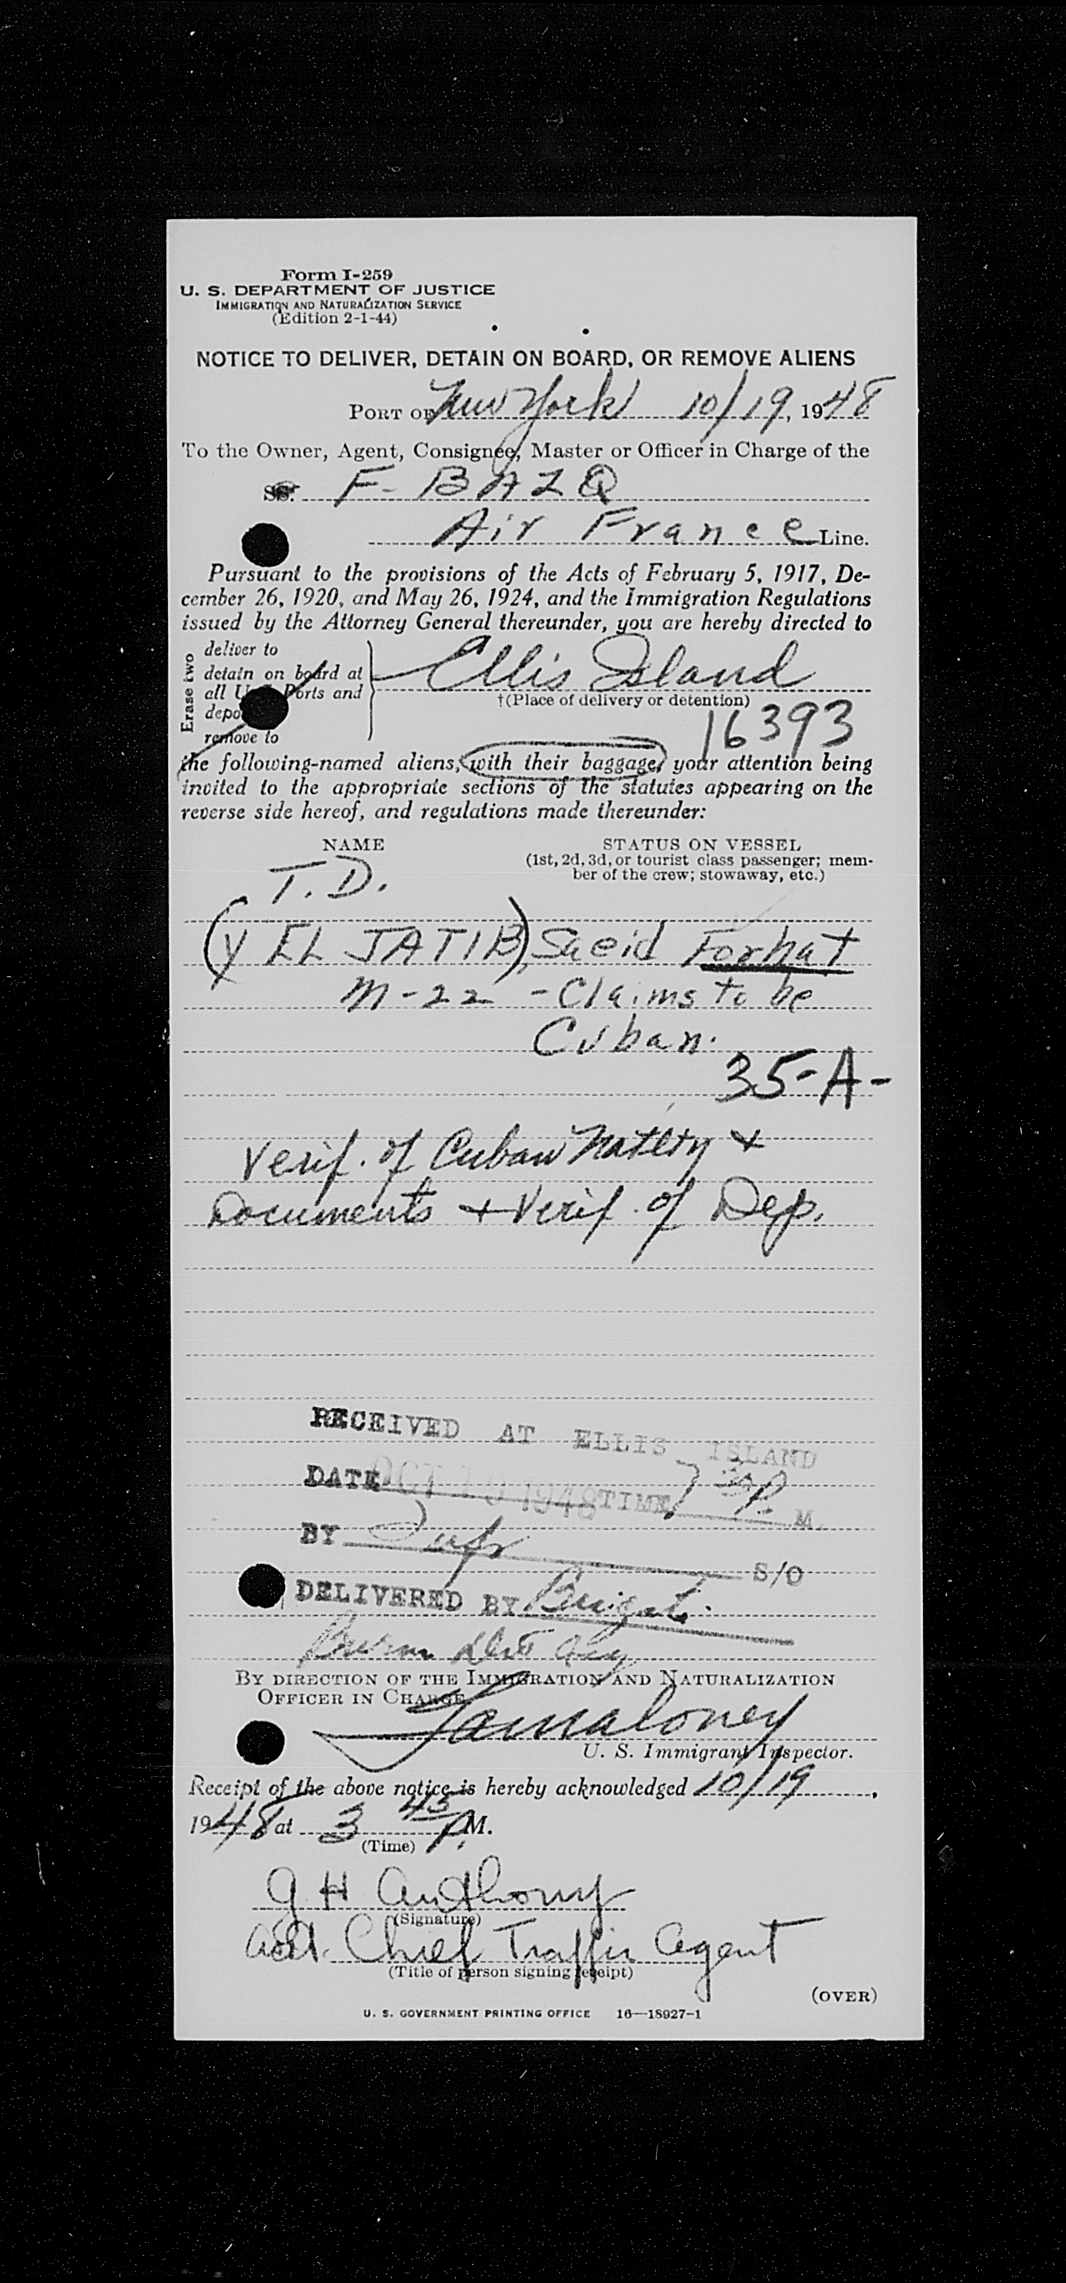 Form I-259
U. S. DEPARTMENT OF JUSTICE
IMMIGRATION AND NATURALIZATION SERVICE
(Edition 2-1-44)
NOTICE TO DELIVER, DETAIN ON BOARD, OR REMOVE ALIENS
PORT OF New York 10/19, 1948
To the Owner, Agent, Consignee, Master or Officer in Charge of the
SS. F-BAZQ
Air France Line.
Pursuant to the provisions of the Acts of February 5, 1917, De-
cember 26, 1920, and May 26, 1924, and the Immigration Regulations
issued by the Attorney General thereunder, you are hereby directed to
Erase two
deliver to
detain on board at
all U Ports and
depo
remove to
Ellis Island
†(Place of delivery or detention)
16393
the following-named aliens, with their baggage, your attention being
invited to the appropriate sections of the statutes appearing on the
reverse side hereof, and regulations made thereunder:
NAME
STATUS ON VESSEL
(1st, 2d, 3d, or tourist class passenger; mem-
ber of the crew; stowaway, etc.)
T.D.
(Y EL JATIB), Saeid Forhat
M-22 - Claims to be
Cuban.
35-A-
Verif. of Cuban Natlty +
Documents + Verif. of Dep.
RECEIVED AT ELLIS ISLAND
DATE OCT 1948 TIME 7 P. M.
BY S/O
DELIVERED BY
BY DIRECTION OF THE IMMIGRATION AND NATURALIZATION
OFFICER IN CHARGE
Maloney
U. S. Immigrant Inspector.
Receipt of the above notice is hereby acknowledged 10/19,
1948 at 3 45 P.M.
(Time)
G H Anthony
(Signature)
Asst. Chief Traffic Agent
(Title of person signing receipt)
(OVER)
U. S. GOVERNMENT PRINTING OFFICE 16—18927-1